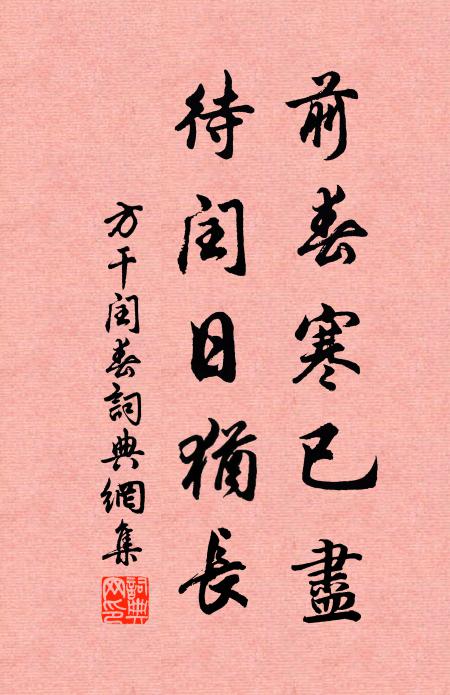 前春寒已盡
待閏日猶長
方干閏春詞典網集
詞典網印